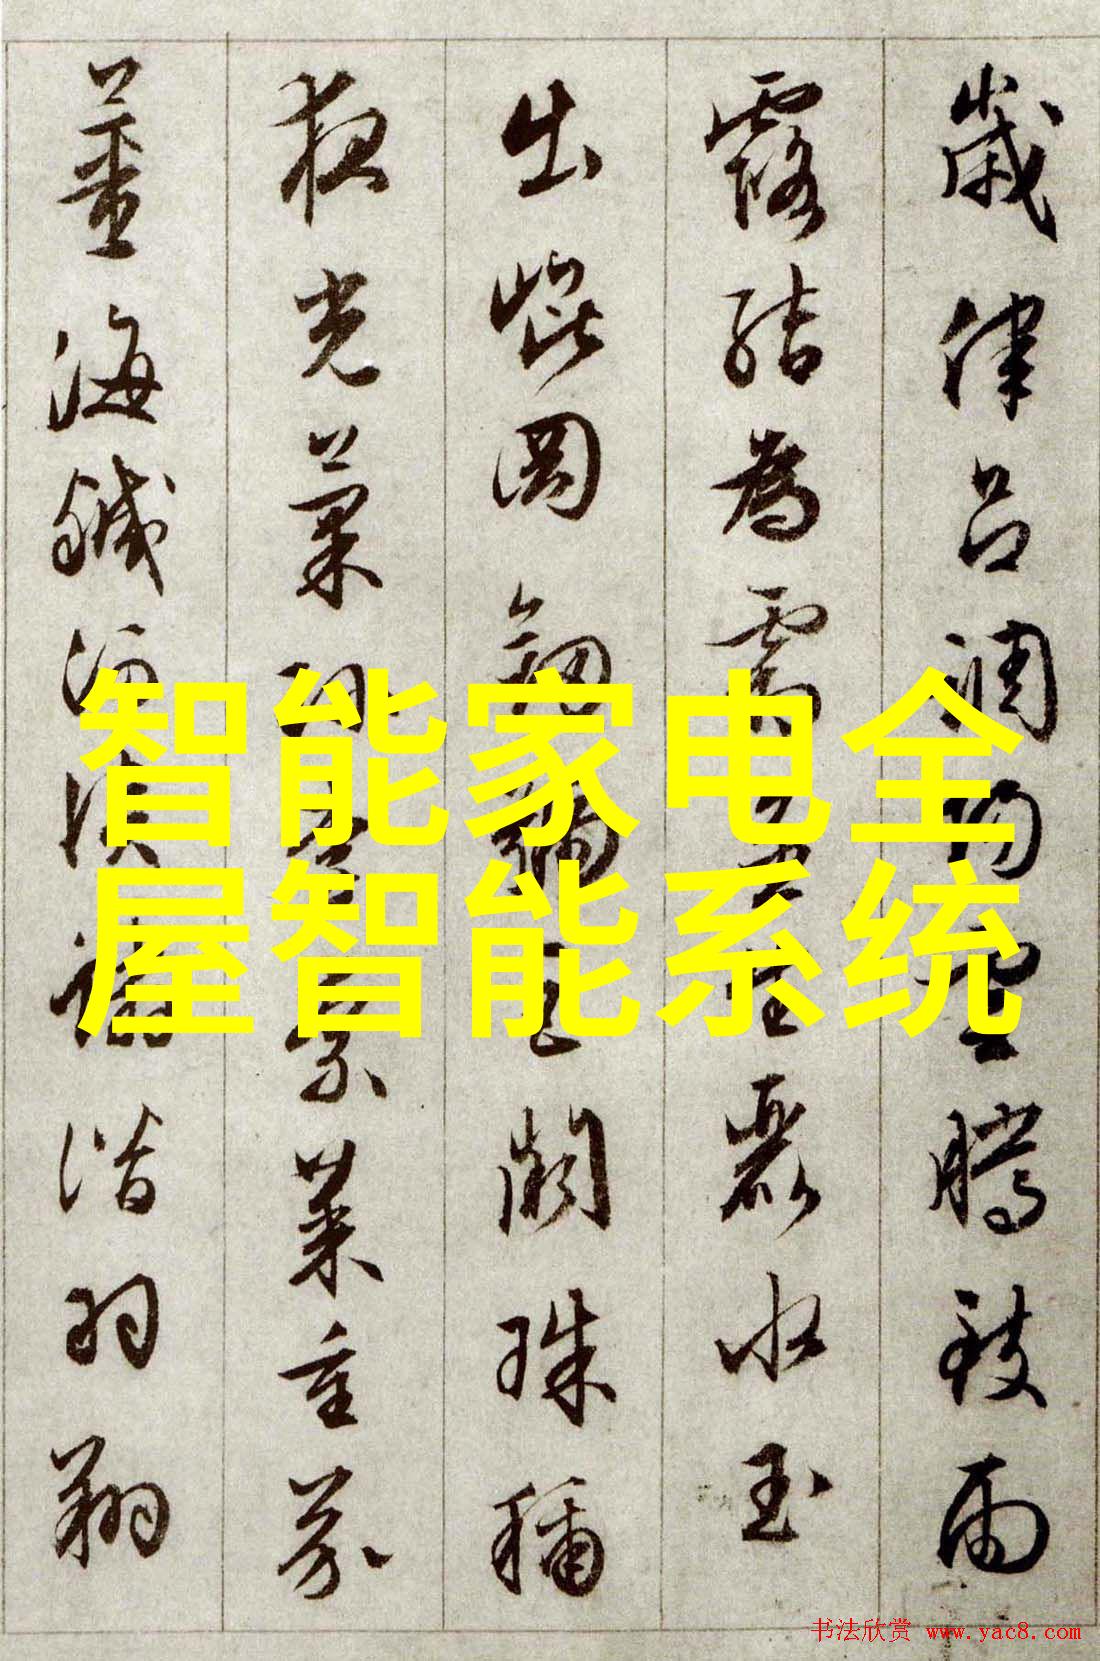 歲律呂調陽雲騰致雨
露結為霜金生麗水玉
出崐岡劍號巨闕珠稱
夜光菓珍李柰菜重芥
薑海鹹河淡鱗潛羽翔
智能家电全
屋智能系统
书法欣赏 www.yac8.com